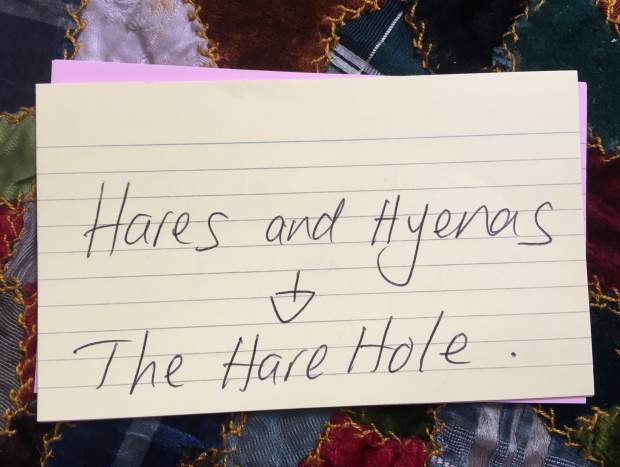 Hares and Hyenas
↓
The Hare Hole.